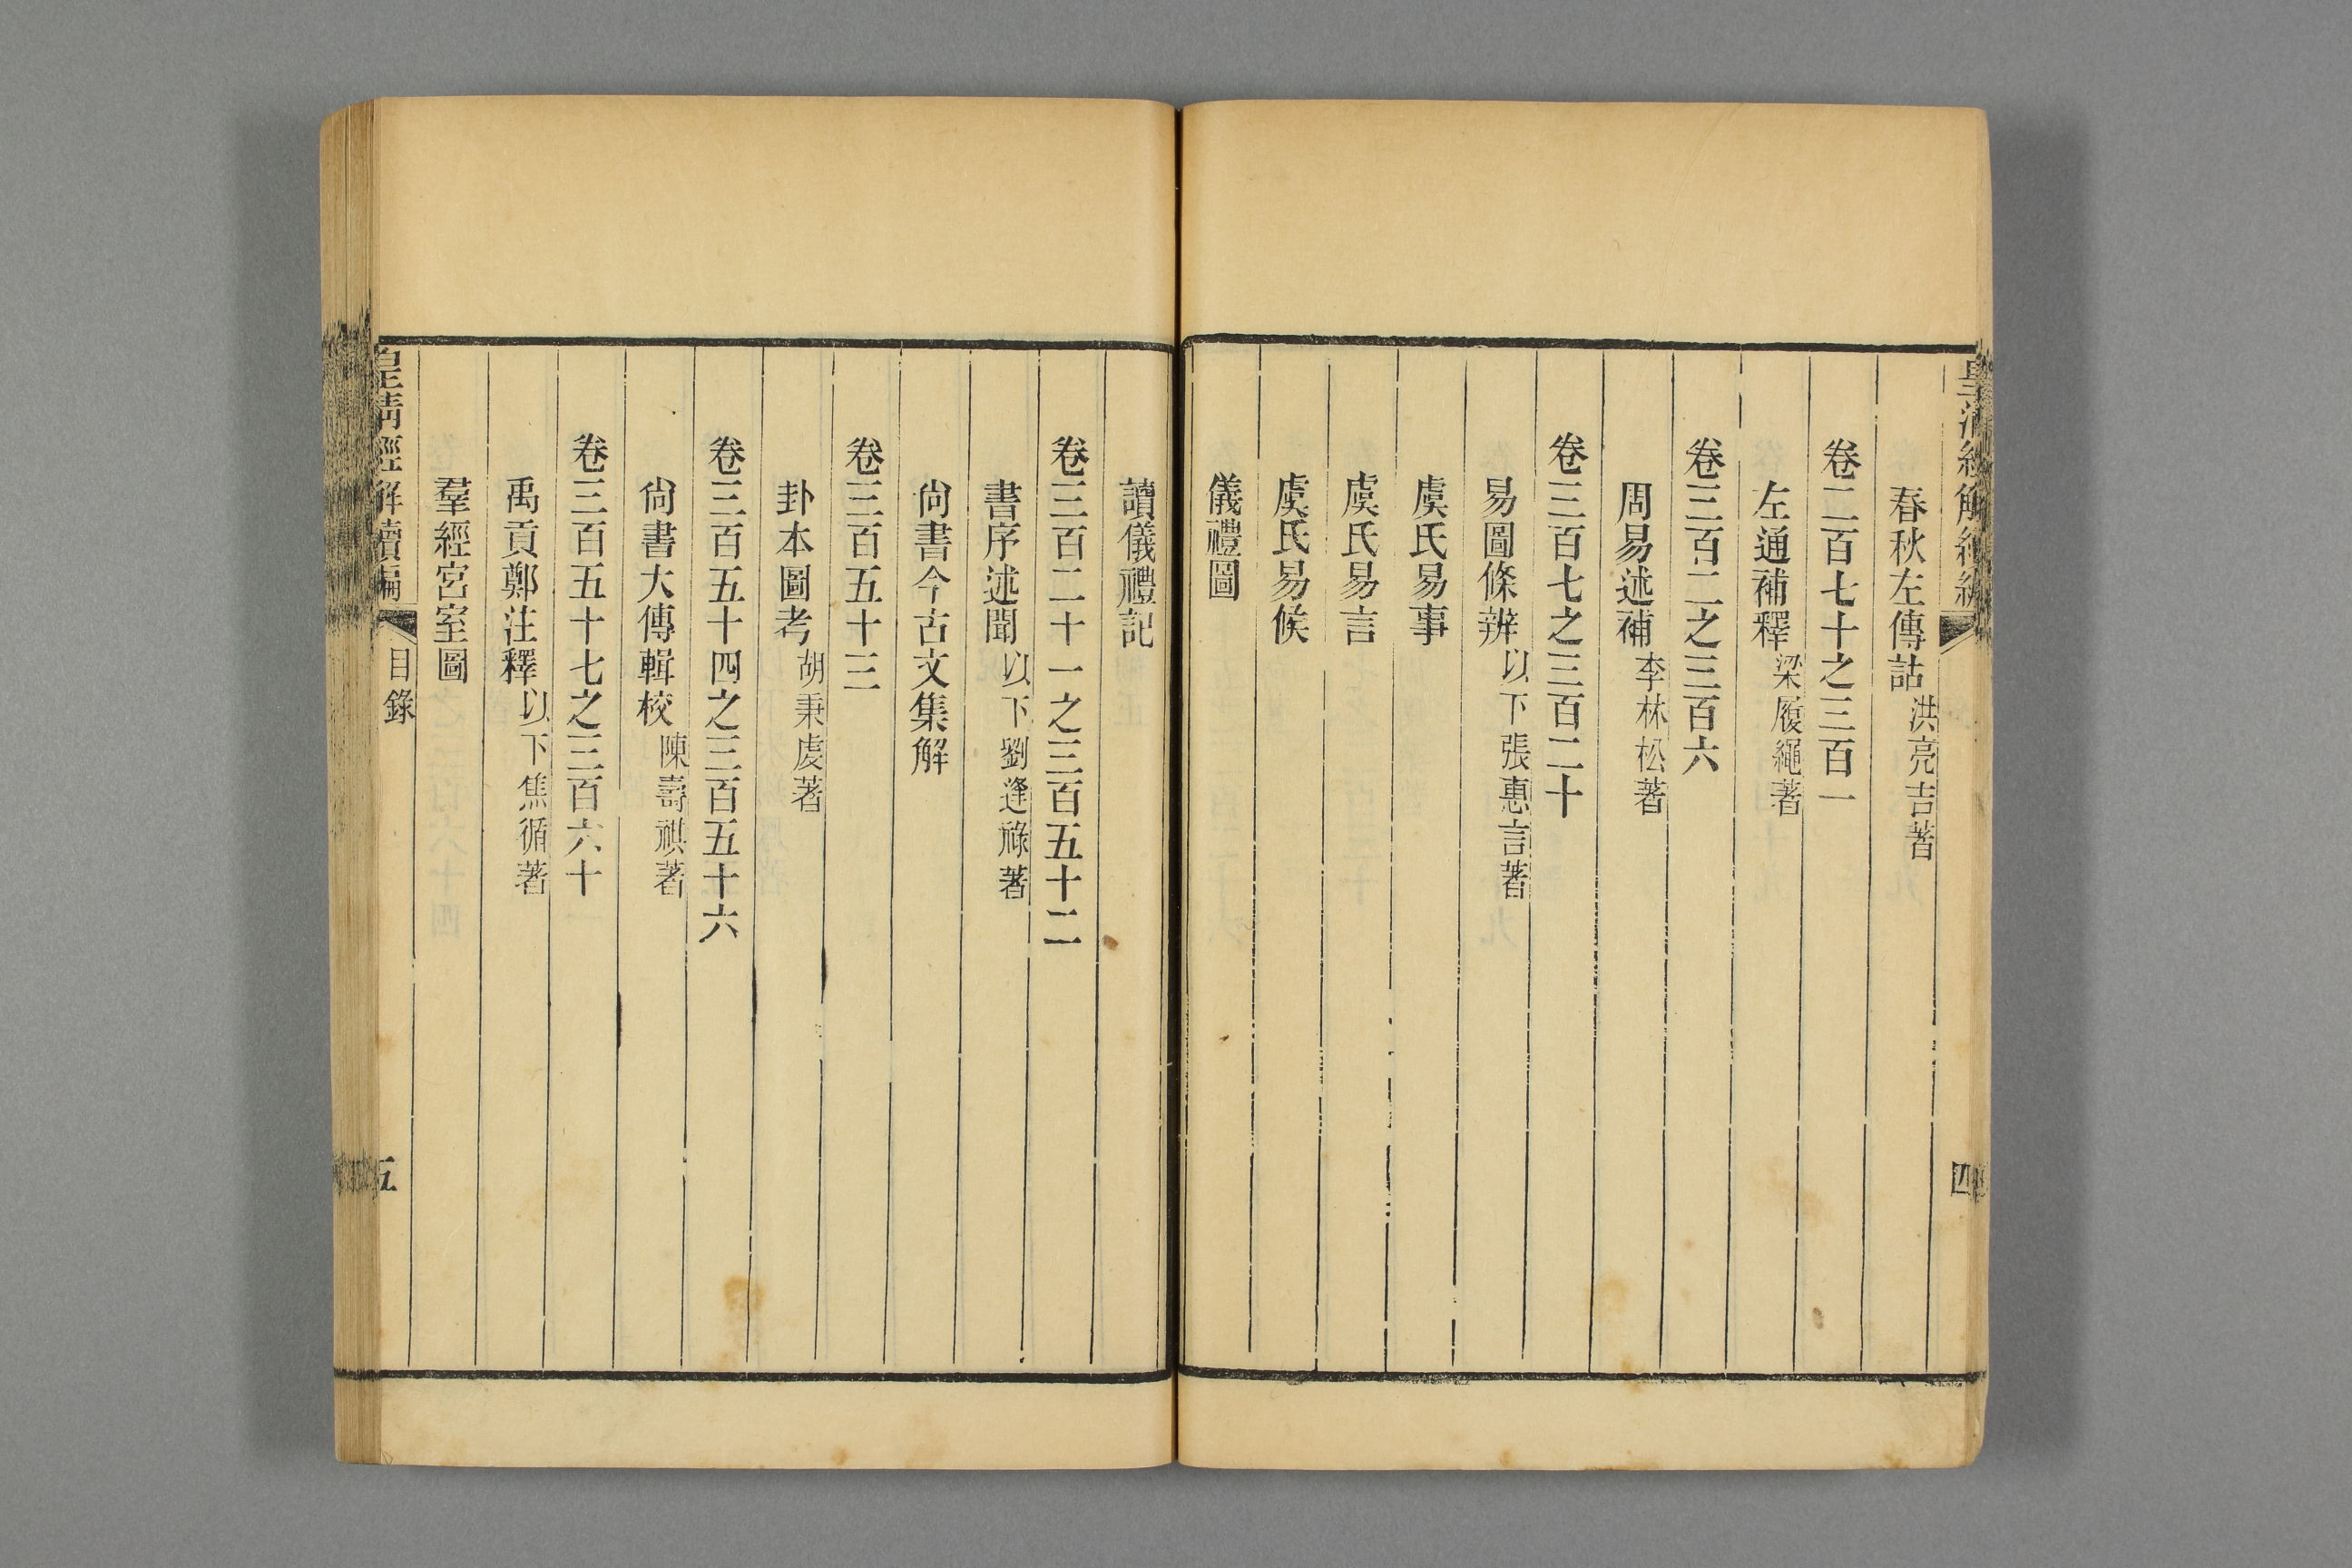 皇清經解續編
四
春秋左傳詁 洪亮吉著
卷二百七十之三百一
左通補釋 梁履繩著
卷三百二之三百六
周易述補 李林松著
卷三百七之三百二十
易圖條辨 以下張惠言著
虞氏易事
虞氏易言
虞氏易候
儀禮圖
讀儀禮記
卷三百二十一之三百五十二
書序述聞 以下劉逢祿著
尙書今古文集解
卷三百五十三
卦本圖考 胡秉虔著
卷三百五十四之三百五十六
尙書大傳輯校 陳壽祺著
卷三百五十七之三百六十
禹貢鄭注釋 以下焦循著
羣經宮室圖
皇清經解續編 目錄 五